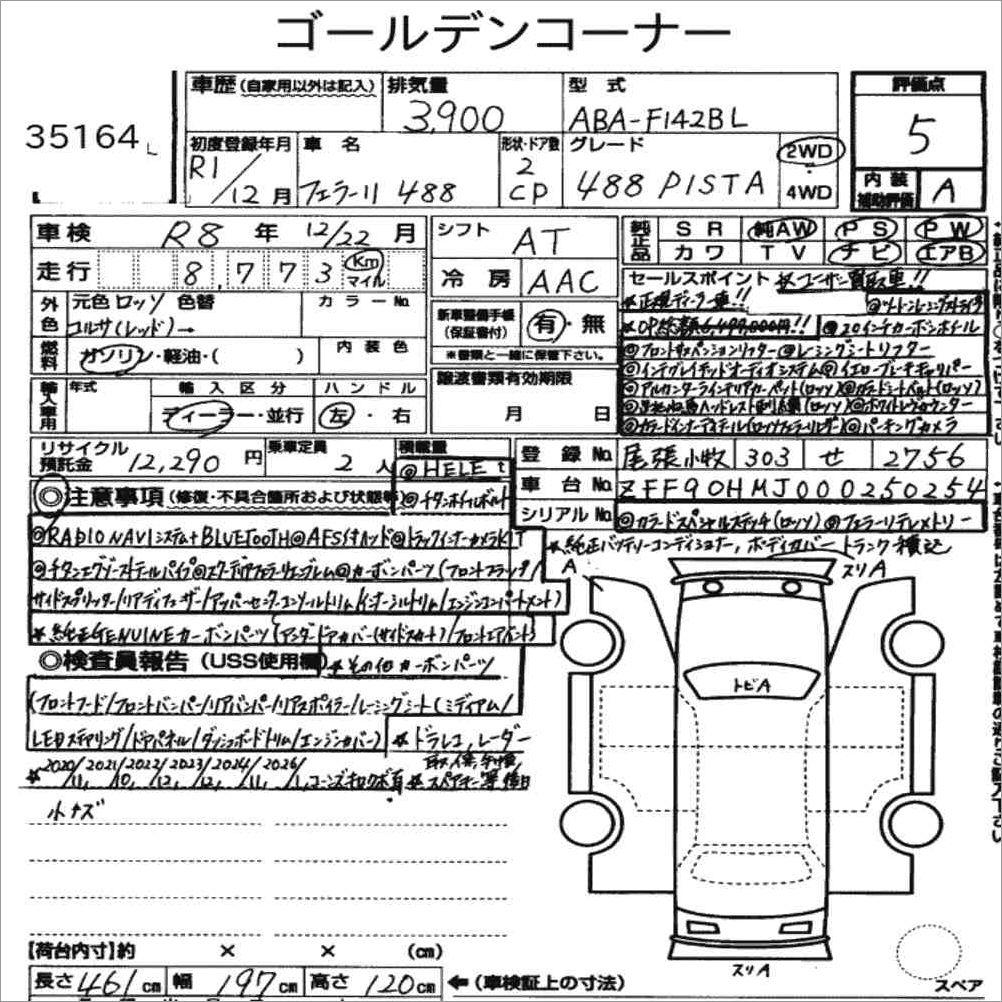 ゴールデンコーナー
35164 L
車歴(自家用以外は記入) 排気量 3,900 型式 ABA-F142BL 評価点 5
初度登録年月 R1/12月 車名 フェラーリ 488 形状・ドア数 2 CP グレード 488 PISTA 2WD 4WD 内装補助評価 A
車検 R8年 12/22月 シフト AT 純正品 SR 純AW PS PW
走行 8,773 Km マイル 冷房 AAC カワ TV ナビ エアB
外色 元色 ロッソ 色替 カラーNo.
コルサ(レッド)→
燃料 ガソリン・軽油・( ) 内装色
新車整備手帳(保証書付) 有・無
※書類と一緒に保管下さい。
輸入車用 年式 輸入区分 ディーラー・並行 ハンドル 左・右
譲渡書類有効期限 月 日
セールスポイント ★ユーザー買取車!!
★正規ディーラー車!!
★OP総額6,499,000円!! ◎20インチカーボンホイール
◎フロントサスペンションリフター ◎レーシングシートリフター
◎インテグレイテッドオーディオシステム ◎イエローブレーキキャリパー
◎アルカンターラインテリアカーペット(ロッソ) ◎カラードシートベルト(ロッソ)
◎跳ね馬ヘッドレスト刺繍(ロッソ) ◎ホワイトレブカウンター
◎パーキングカメラ
リサイクル預託金 12,290円 乗車定員 2人 積載量 t
◎HELE
◎チタンホイールボルト
登録No. 尾張小牧 303 せ 2756
車台No. ZFF90HMJ000250254
シリアルNo. ◎カラードスペシャルステッチ(ロッソ) ◎フェラーリテレメトリー
◎注意事項(修復・不具合箇所および状態等)
◎RADIO NAVIシステム+BLUETOOTH ◎AFS付ヘッド ◎トラックインナーカメラKIT
★純正バッテリーコンディショナー, ボディカバー トランク積込
◎チタンエグゾーストテールパイプ ◎エクステリアフェラーリエンブレム ◎カーボンパーツ(フロントフラップ/
サイドスプリッター/リアディフューザー/アッパーセンターコンソールトリム/インナーシルトリム/エンジンコンパートメント)
★純正GENUINEカーボンパーツ(アンダードアカバー(サイドスカート)/フロントエアベント)
◎検査員報告(USS使用欄) ★その他カーボンパーツ
(フロントフード/フロントバンパー/リアバンパー/リアスポイラー/レーシングシート(ミディアム)/
LEDステアリング/ドアパネル/ダッシュボードトリム/エンジンカバー) ★ドラレコ, レーダー
★2020/11, 2021/10, 2022/12, 2023/12, 2024/11, 2026/1, コーンズキロク有 ★取, 保, 手帳, スペアキー等 後日
小キズ
A スリA
トビA
スリA
スペア
【荷台内寸】約 × × (cm)
長さ 461cm 幅 197cm 高さ 120cm ←(車検証上の寸法)